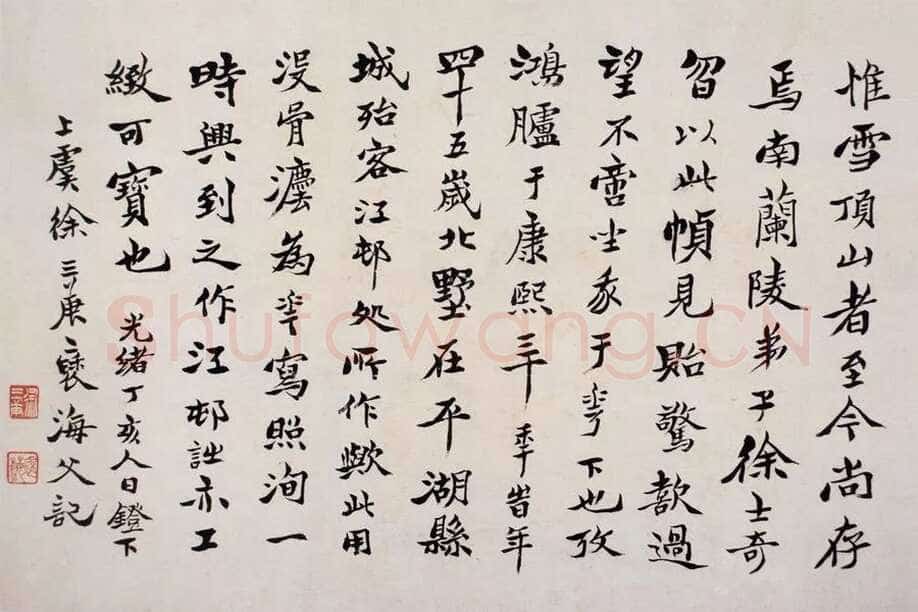 惟雪頂山者至今尚存
焉南蘭陵弟子徐士奇
曶以此幀見貽驚歎過
望不啻坐余于琴下也攷
鴻臚于康熙三十年峕年
四十五歲北墅在平湖縣
城殆客江邨処所作歟此用
没骨灋為琴寫照洵一
時興到之作江邨詘亦工
緻可寶也 光緒丁亥人日鐙下
上虞徐三庚褎海父記
Shufawang.CN